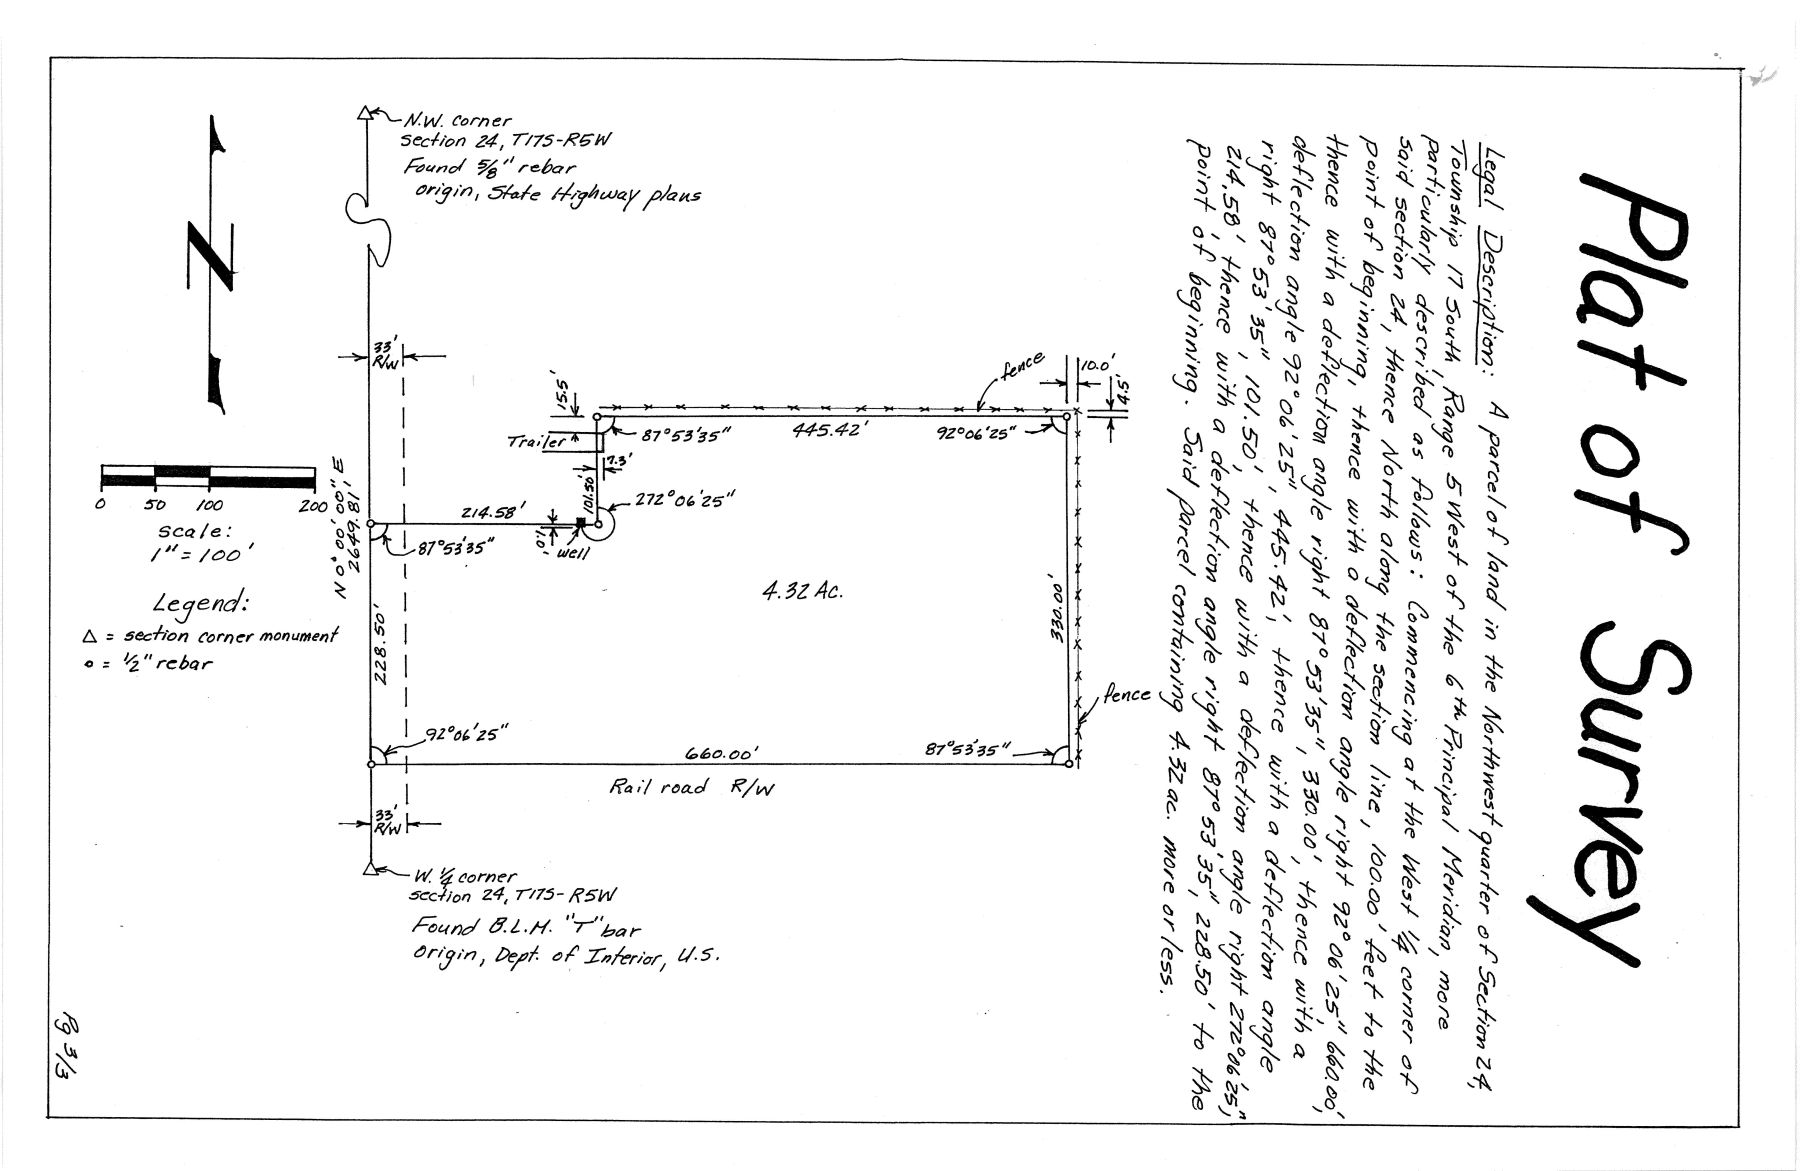 Plat of Survey
Legal Description: A parcel of land in the Northwest quarter of Section 24,
Township 17 South, Range 5 West of the 6th Principal Meridian, more
particularly described as follows: Commencing at the West 1/4 corner of
said section 24, thence North along the section line, 100.00' feet to the
point of beginning, thence with a deflection angle right 92°06'25" 660.00',
thence with a deflection angle right 87°53'35", 330.00', thence with a
deflection angle 92°06'25", 445.42', thence with a deflection angle
right 87°53'35", 101.50', thence with a deflection angle right 272°06'25",
214.58', thence with a deflection angle right 87°53'35", 228.50' to the
point of beginning. Said parcel containing 4.32 ac. more or less.
N.W. corner
section 24, T17S-R5W
Found 5/8" rebar
origin, State Highway plans
N
33'
R/W
fence
10.0'
4.5'
15.5'
Trailer
87°53'35"
445.42'
92°06'25"
7.3'
101.50'
272°06'25"
214.58'
1.0'
well
87°53'35"
0 50 100 200
scale:
1"=100'
N 0°00'00" E
2649.81'
Legend:
△ = section corner monument
o = 1/2" rebar
4.32 Ac.
330.00'
228.50'
fence
92°06'25"
660.00'
87°53'35"
Rail road R/W
33'
R/W
W. 1/4 corner
section 24, T17S-R5W
Found B.L.M. "T" bar
Origin, Dept. of Interior, U.S.
Pg 3/3